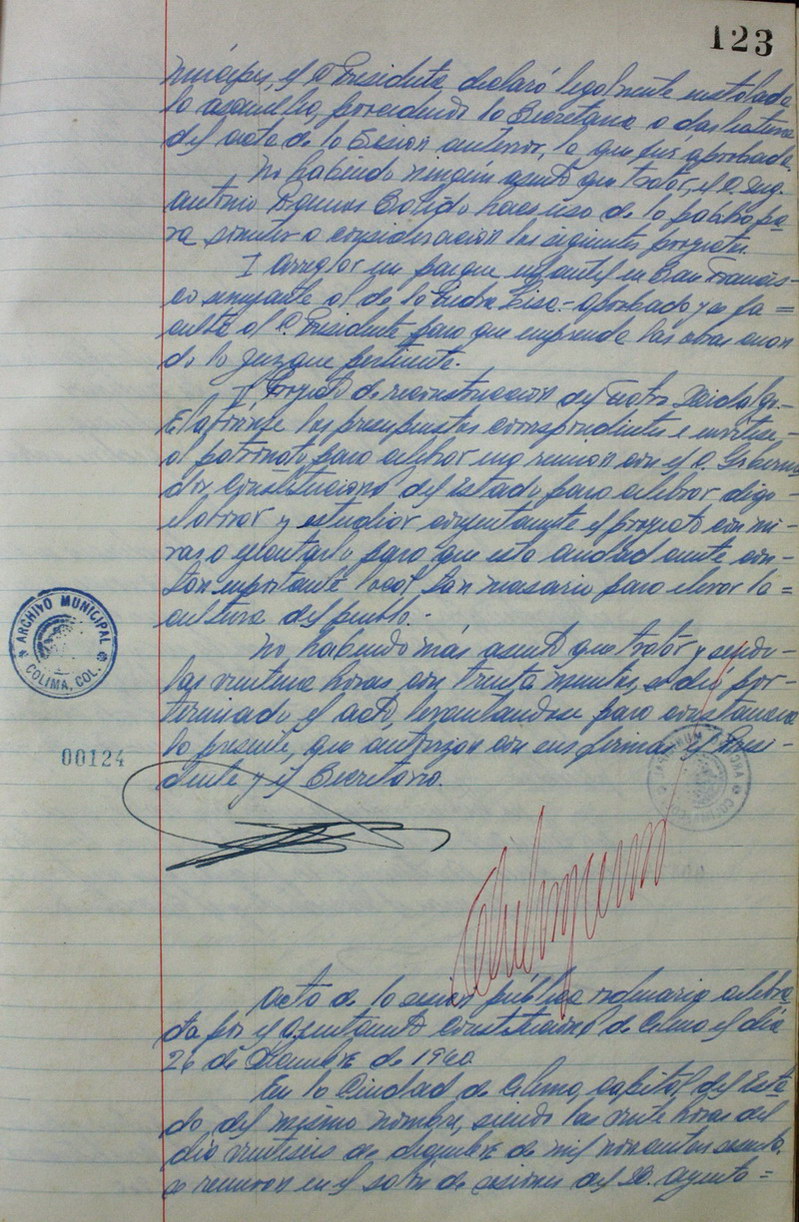 123
nícipes, el C. Presidente, declaró legalmente instalada
la asamblea, procediendo la Secretaría a dar lectura
del acta de la Sesión anterior, la que fué aprobada.
No habiendo ningún asunto que tratar, el C. Ing.
Antonio Ramos hace uso de la palabra pa-
ra someter a consideración los siguientes proyectos.
I Arreglar un parque infantil en San Francis-
co semejante al de la Piedra Lisa - aprobado y se fa=
culta al C. Presidente para que emprenda las obras cuan
do lo juzgue pertinente.
I Proyecto de reconstrucción del Teatro Hidalgo.-
Elabórense los presupuestos correspondientes e invítese
al patronato para celebrar una reunión con el C. Goberna
dor Constitucional del Estado para celebrar digo-
elaborar y estudiar conjuntamente el proyecto con mi-
ras a ejecutarlo para que esta ciudad cuente con-
tan importante local, tan necesario para elevar la=
cultura del pueblo.-
No habiendo más asunto que tratar y siendo-
las veintiuna horas con treinta minutos, se dió por-
terminado el acto, levantándose para constancia
la presente, que autorizan con sus firmas el Presi-
dente y el Secretario.
ARCHIVO MUNICIPAL
COLIMA, COL.
00124
Acta de la sesión pública ordinaria celebra-
da por el Ayuntamiento Constitucional de Colima el día
26 de Diciembre de 1960.
En la Ciudad de Colima, capital del Esta
do del mismo nombre, siendo las veinte horas del
día veintiseis de diciembre de mil novecientos sesenta,
se reunieron en el salón de sesiones del H. Ayunta=